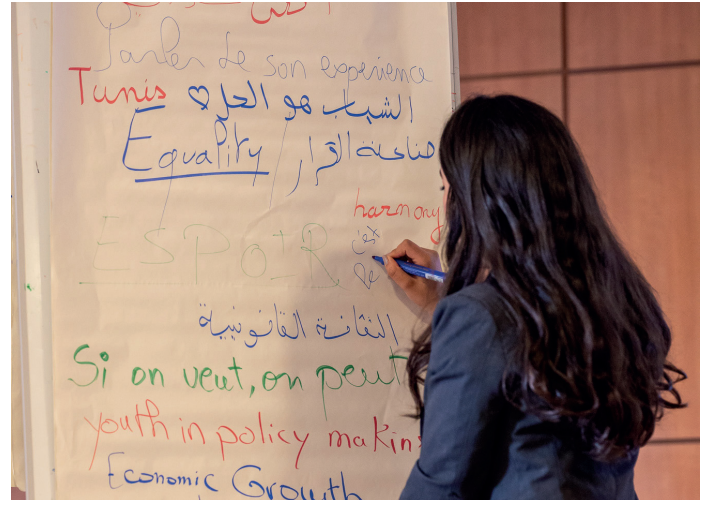 Parler de son experience
Tunis
الشباب هو الحل
Equality
صناعة القرار
harmony
ESPOIR
الثقافة القانونية
Si on veut, on peut
youth in policy making
Economic Growth